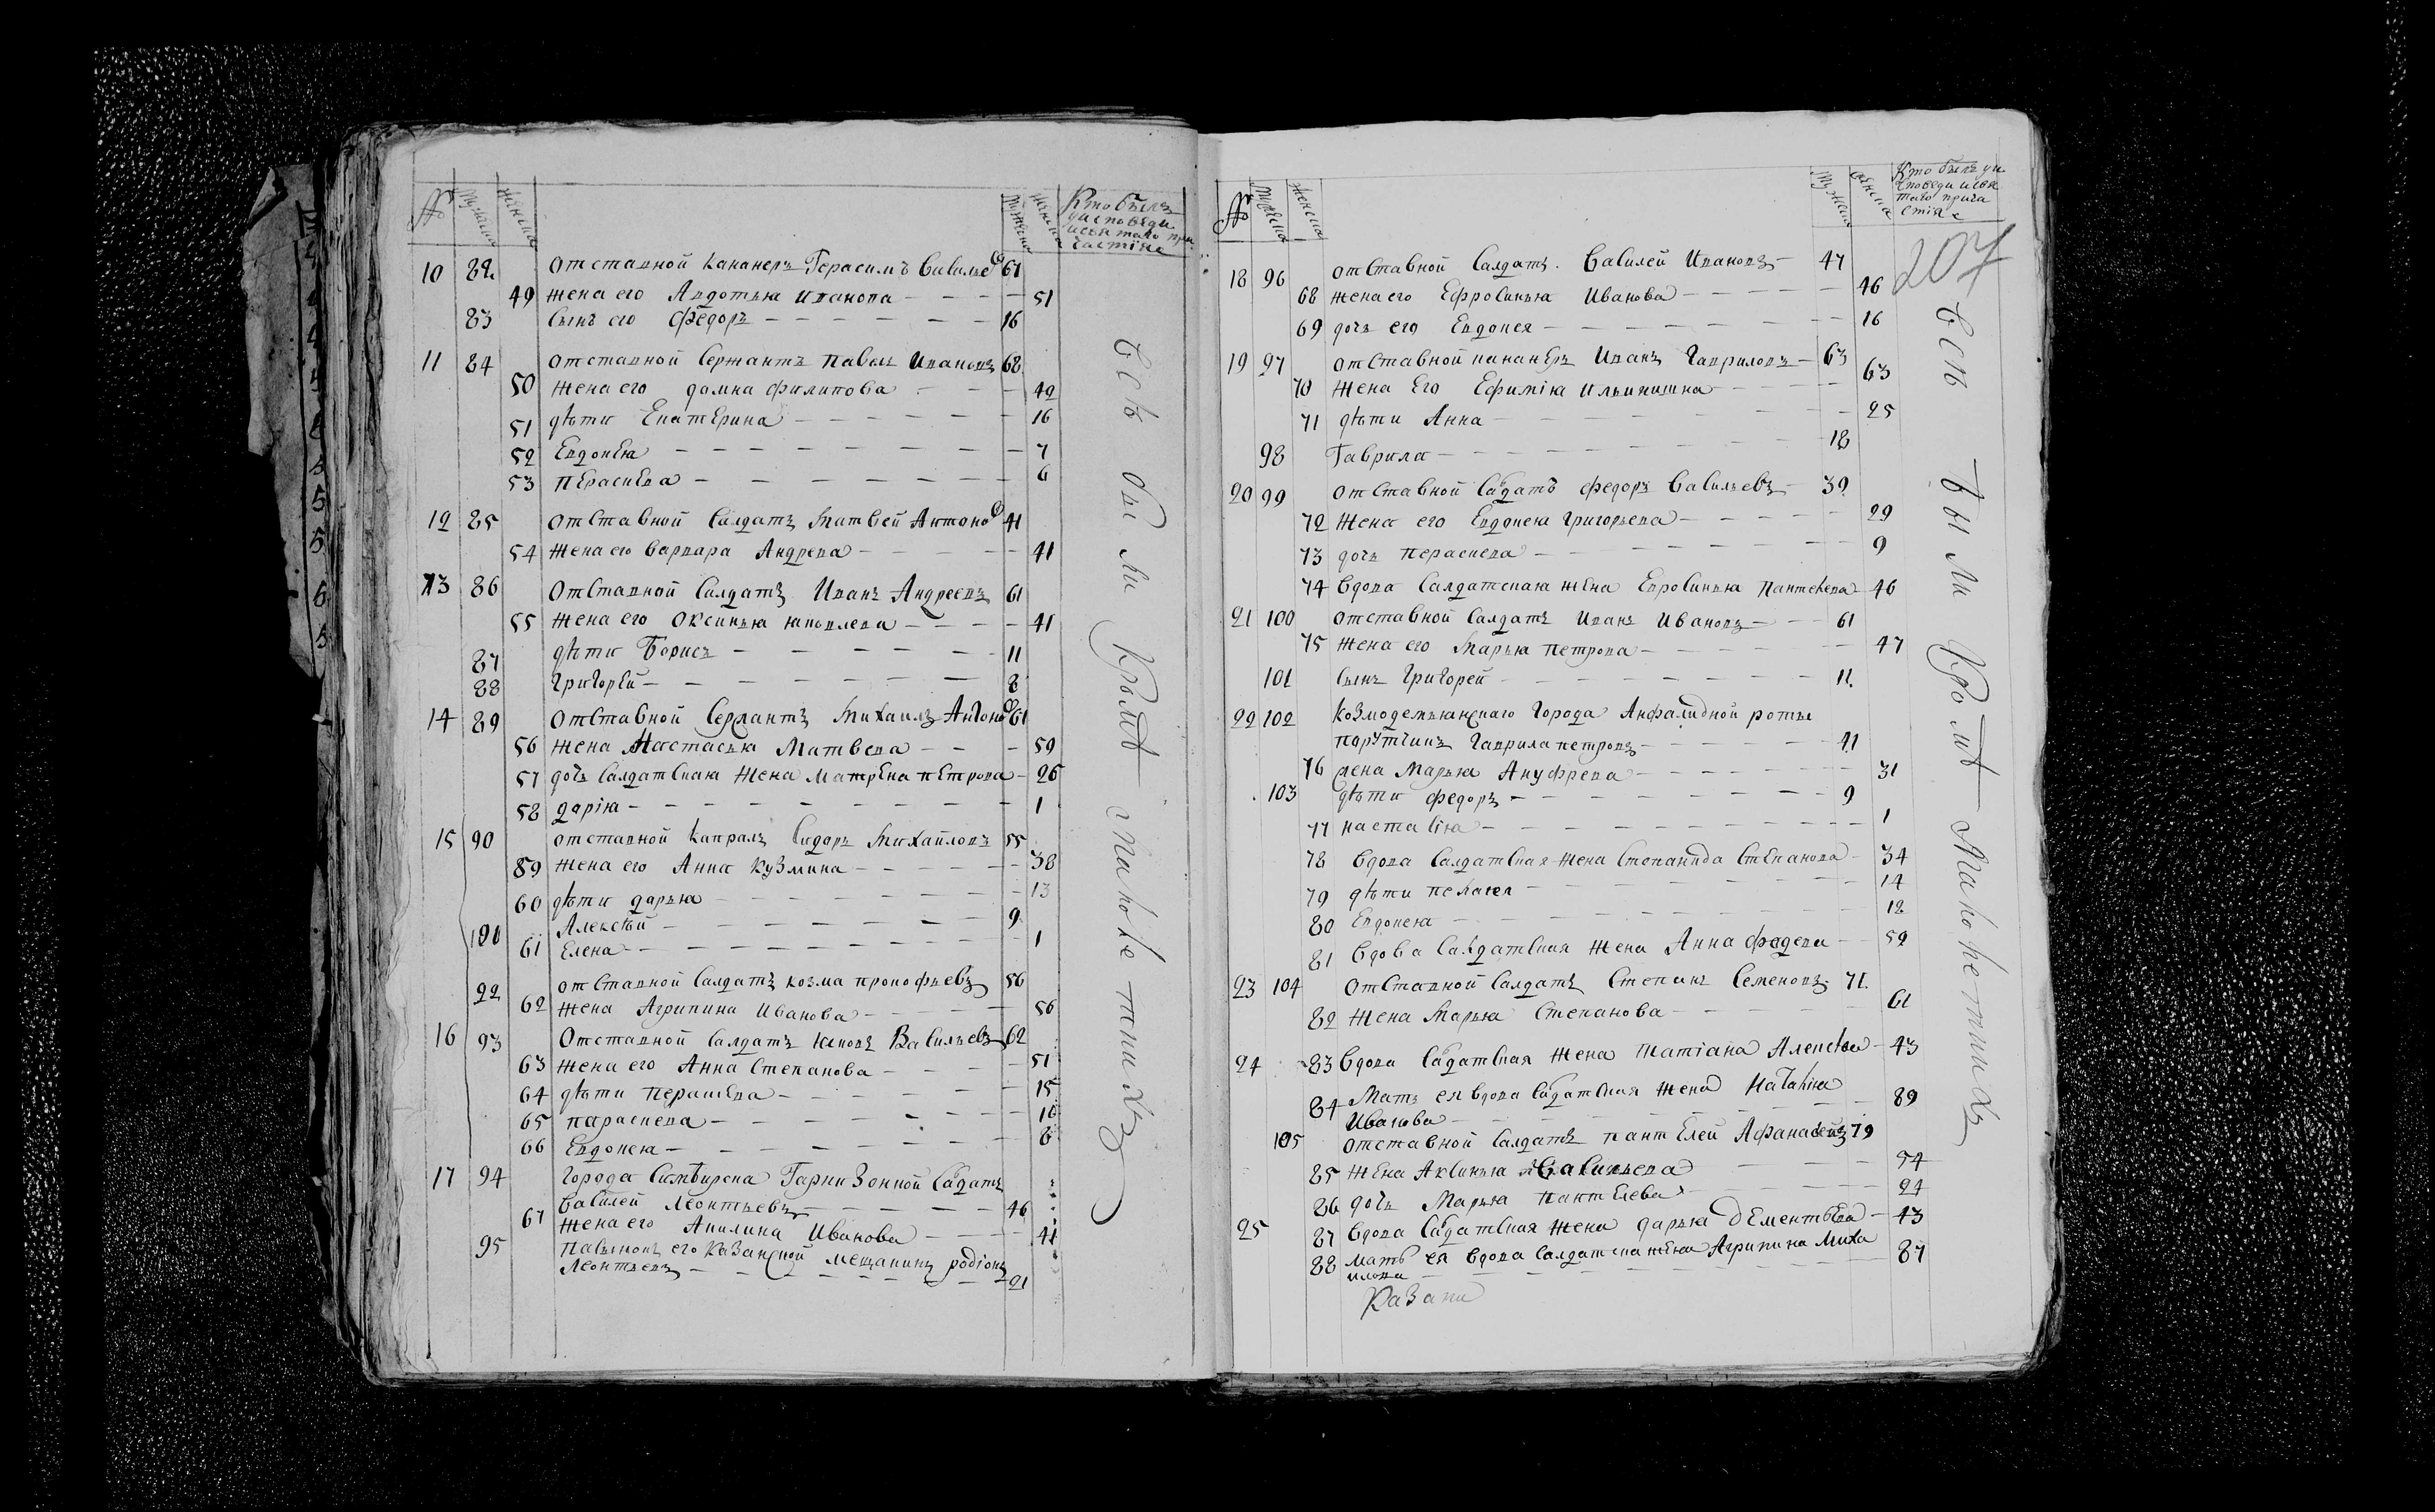 № Мужеска Женска Мужеска Женска Кто былъ
у исповеди
и святаго при
частїя
10 82 отставной кананеръ Герасимъ Василье въ 61
49 жена его Авдотья Иванова 51
83 сынъ его Федоръ 16
11 84 отставной Сержантъ Павелъ Ивановъ 68
50 жена его домна филипова 49
51 дѣти Екатерина 16
52 Евдокея 7
53 Пераскева 6
12 85 отставной Салдатъ Матвей Антоновъ 41
54 жена его варвара Андрева 41
13 86 отставной Салдатъ Иванъ Андреевъ 61
55 жена его Оксинья яковлева 41
87 дѣти Борисъ 11
88 Григорей 8
14 89 отставной Сержантъ Михаилъ Антоновъ 61
56 жена Настасья Матвева 59
57 дочь салдатская жена Матрена петрова 26
58 дарїя 1
15 90 отставной капралъ Сидоръ Михайловъ 55
59 жена его Анна кузмина 38
60 дѣти дарья 13
Алексѣй 9
61 Елена 1
92 отставной Салдатъ козма прокофьевъ 56
62 жена Агрипина Иванова 50
16 93 Отставной Салдатъ яковъ Васильевъ 62
63 жена его Анна Степанова 51
64 дѣти Пераскева 15
65 параскева 10
66 Евдокея 8
17 94 города Симбирска Гарнизонной Салдатъ
Василей Леонтьевъ 46
67 жена его Акилина Иванова 41
95 пасынокъ его казанской мещанинъ родїонъ
Леонтьевъ 21
Всѣ были кромѣ малолетнихъ
№ Мужеска Женска Мужеска Женска Кто былъ у ис
поведи и свя
таго прича
стїя
207
18 96 отставной Салдатъ Василей Ивановъ 47
68 жена его Ефросинья Иванова 46
69 дочь его Евдокея 16
19 97 отставной кананеръ Иванъ Гавриловъ 63
70 жена Его Ефимїя Ильинишна 63
71 дѣти Анна 25
98 Гаврила 18
20 99 отставной Салдатъ федоръ Васильевъ 39
72 жена его Евдокея григорьева 29
73 дочь пераскева 9
74 вдова Салдатская жена Евросинья Пантелева 46
21 100 отставной Салдатъ Иванъ Ивановъ 61
75 жена его Марья петрова 47
101 сынъ Григорей 11
22 102 козмодемьянскаго города Инфалидной роты
порутчикъ Гаврила петровъ 41
76 жена Марья Ануфрева 31
103 дѣти федоръ 9
77 настасїя 1
78 вдова Салдатская жена Степанида Степанова 34
79 дѣти пелагея 14
80 Евдокея 12
81 вдова Салдатская жена Анна фадева 59
23 104 отставной Салдатъ Степанъ Семеновъ 71
82 жена Марья Степанова 61
24 83 вдова Салдатская жена Татїана Алексева 43
84 Мать ея вдова салдатская жена Наталия
Иванова 89
105 отставной Салдатъ пантелей Афанасьевъ 79
85 жена Аксинья Васильева 54
86 дочь Марья пантелева 24
25 87 вдова Салдатская жена дарья дементьева 43
88 мать ея вдова Салдатска жена Агрипина Миха
илова 87
Казани
Всѣ были кромѣ малолетнихъ